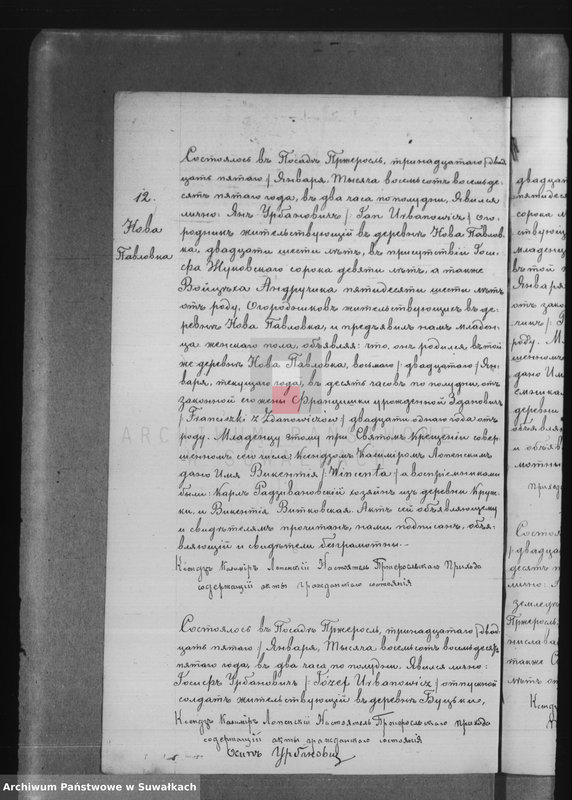 12.
Нова
Павловка
Состоялось въ Посадѣ Пржеросль, тринадцатаго /: двад-
цать пятаго :/ Января, Тысяча восемьсотъ восемьде-
сятъ пятаго года, въ два часа по полудни, Явился
лично: Янъ Урбановичъ /: Jan Urbanowicz :/ Ого-
родникъ жительствующій въ деревнѣ Нова Павлов-
ка, двадцати шести лѣтъ, въ присутствіи Іоси-
фа Жуковскаго сорока девяти лѣтъ, а также
Войцѣха Андручика пятидесяти шести лѣтъ
отъ роду, Огородниковъ жительствующихъ въ де-
ревнѣ Нова Павловка, и предъявилъ намъ младен-
ца женскаго пола, объявляя: что, онъ родился въ той
же деревнѣ Нова Павловка, восьмаго /: двадцатаго :/ Ян-
варя, текущаго года, въ десять часовъ по полудни, отъ
законной его жены Францишки урожденной Здановичъ
/: Franciszki z Zdanowiczów :/ двадцати однаго года отъ
роду. Младенцу этому при Святомъ Крещеніи совер-
шенномъ сего числа: Ксендзомъ Казимiромъ Лопенскимъ
дано Имя Викентія /: Wincenta :/ а воспріемниками
были: Карлъ Радзивановскій хозяинъ изъ деревни Круш-
ки, и Викентія Витковская. Актъ сей объявляющему
и свидѣтелямъ прочитанъ, нами подписанъ, объя-
вляющій и свидѣтели безграмотны.–
Ксендзъ Казимiръ Лопенскій Настоятель Пржеросльскаго Прихода
содержащій акты гражданскаго состоянія
Состоялось въ Посадѣ Пржеросль, тринадцатаго /: двад-
цать пятаго :/ Января, Тысяча восемьсотъ восемьдесятъ
пятаго года, въ два часа по полудни. Явился лично:
Іосифъ Урбановичъ /: Józef Urbanowicz :/ отпускной
солдатъ жительствующій въ деревнѣ Буцьки,
Ксендзъ Казимiръ Лопенскій Настоятель Пржеросльскаго прихода
содержащій акты гражданскаго состоянія
Урбановичъ
ARCHIWUM PAŃSTWOWE
Archiwum Państwowe w Suwałkach